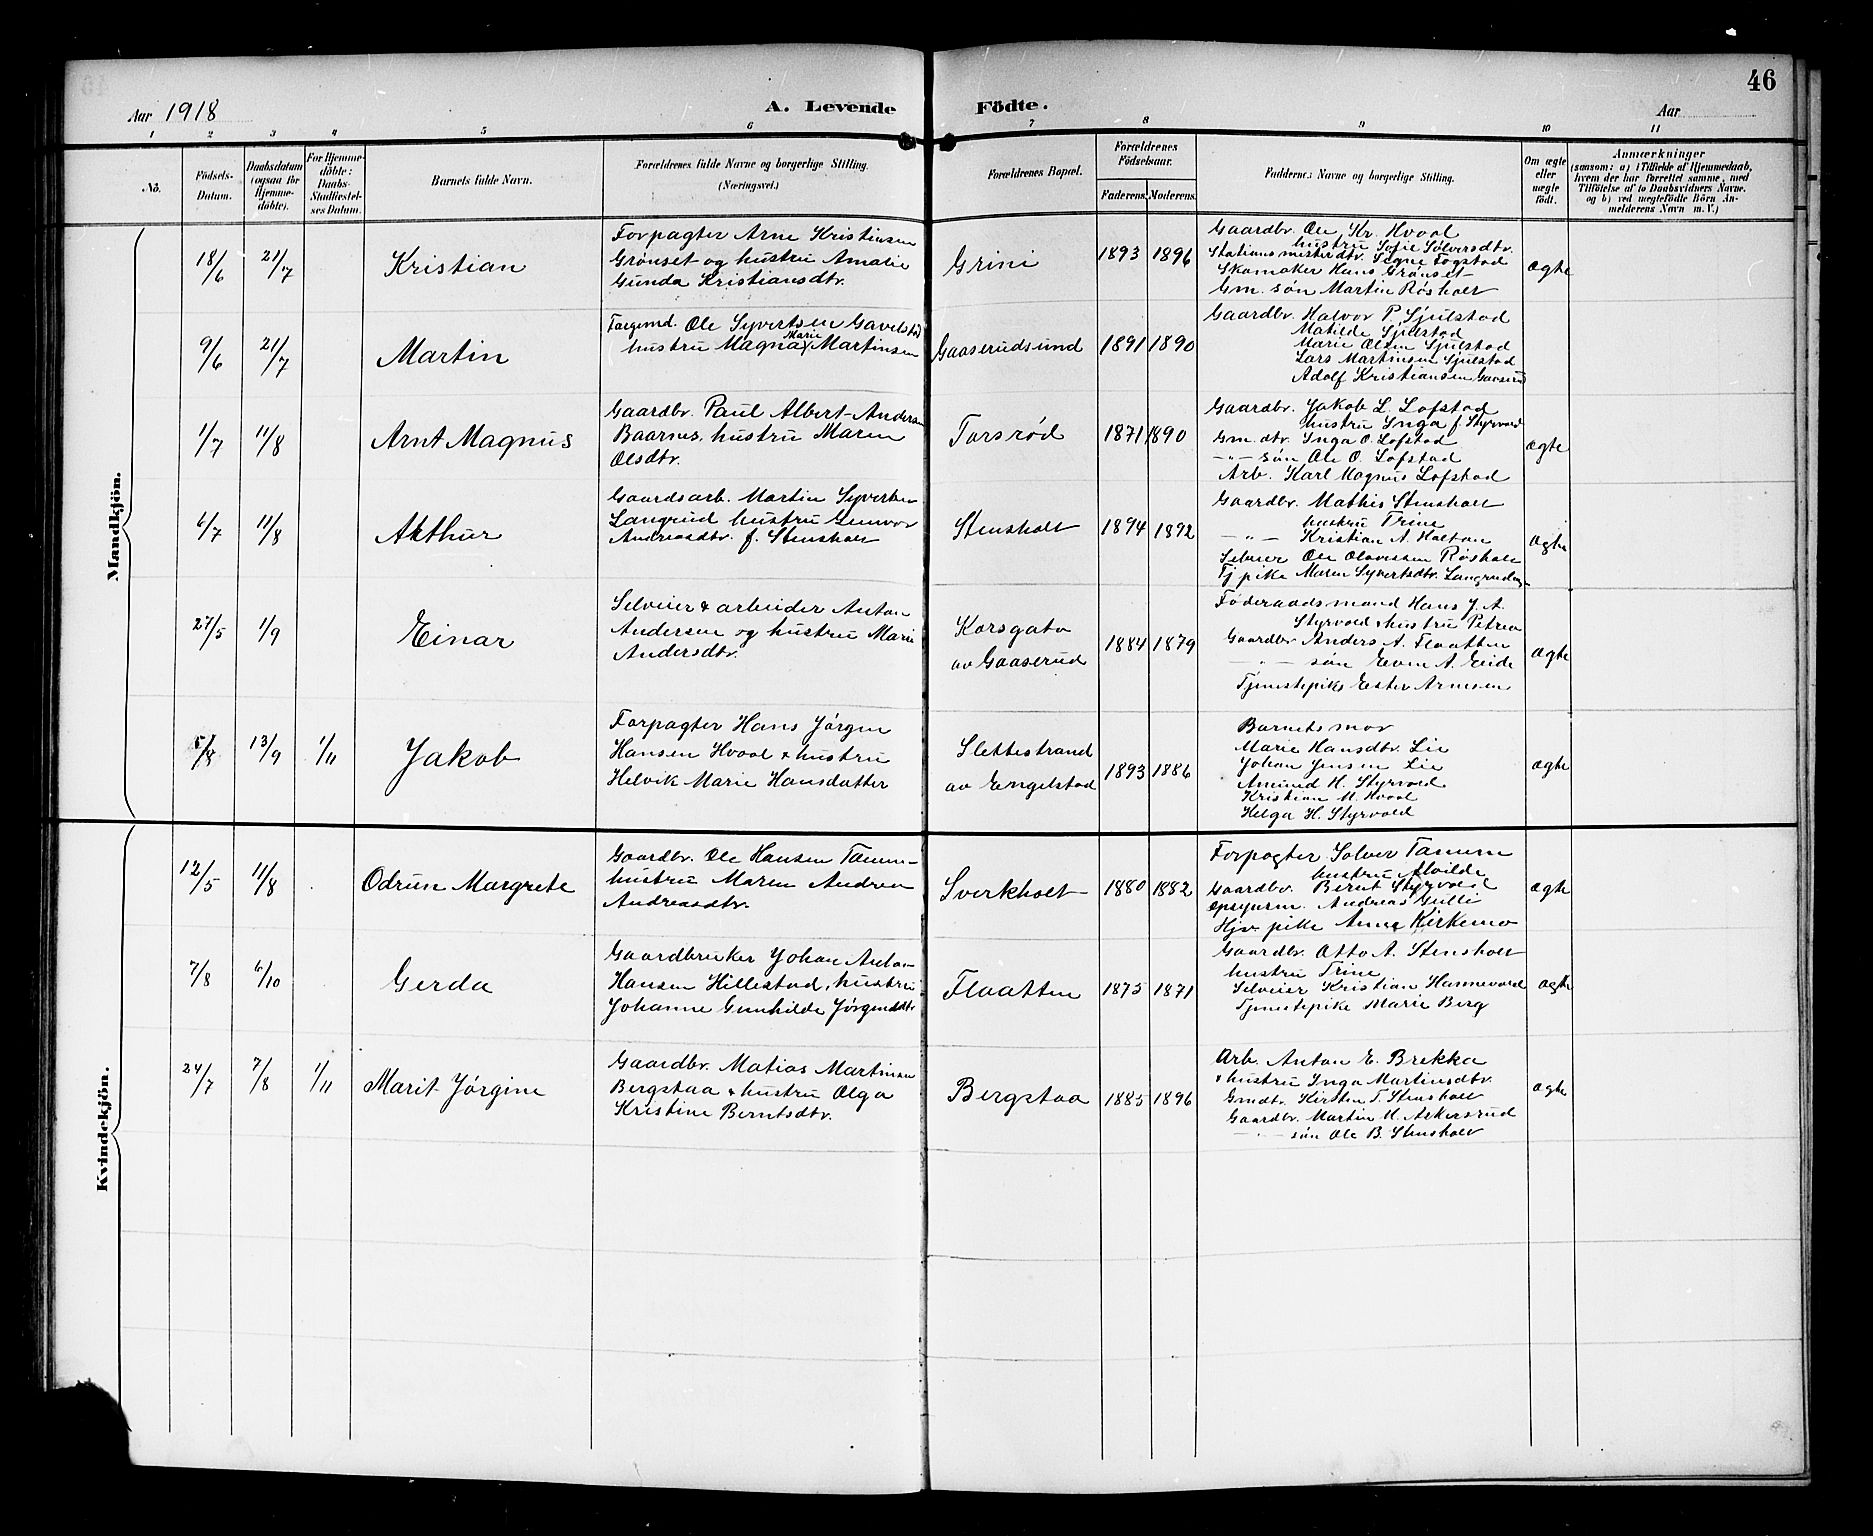 46
Aar 1918
A. Levende Födte.
Aar
1 2 3 4 5 6 7 8 9 10 11
No.
Födsels-Datum.
Daabsdatum (ogsaa for Hjemme-döbte).
For Hjemme-döbte: Daabs-Stadfæstel-ses Datum.
Barnets fulde Navn.
Forældrenes fulde Navne og borgerlige Stilling. (Næringsvei.)
Forældrenes Bopæl.
Forældrenes Födselsaar.
Faderens. Moderens.
Faddernes Navne og borgerlige Stilling.
Om ægte eller uægte födt.
Anmærkninger
(saasom: a) i Tilfælde af Hjemmedaab, hvem der har forrettet samme, med Tilföielse af to Daabsvidners Navne. og b) ved uægtefödte Börn An-melderens Navn m. V.)
Mandkjön.
18/6 21/7 Kristian
Forpagter Arne Kristiansen
Grönset og hustru Amalie
Gunda Kristiansdtr.
Grini 1893 1896
Gaardbr. Ole Kr. Hvaal
hustru Sofie Sølversdtr.
Stationsmisterdtr. Signe Fogstad
Skomaker Hans Grønset
Gm. søn Martin Røsholt
ægte
9/6 21/7 Martin
Ole Syvertsen Gavelstad
hustru Magna Marie Martinsen
Gaaserudsund 1891 1890
Gaardbr. Halvor P. Sjulstad
Matilde Sjulstad
Marie Olsen Sjulstad
Lars Martinsen Sjulstad
Adolf Kristiansen Gaaserud
1/7 11/8 Arnt Magnus
Gaardbr. Paul Albert Anderson
Baarnes, hustru Maren
Olsdtr.
Torsrød 1871 1890
Gaardbr. Jakob L. Lofstad
hustru Inga f. Styrvold
Gm. dtr. Inga O. Lofstad
-"- søn Ole O. Lofstad
Arb. Karl Magnus Lofstad
ægte
6/7 11/8 Arthur
Gaardsarb. Martin Syvertsen
Langrud hustru Gunvor
Andreasdtr. f. Stensholt
Stensholt 1894 1892
Gaardbr. Mathis Stensholt
hustru Trine
-"- Kristian A. Holtan
Selveier Ole Olavessen Røsholt
Tj pike Maren Syvertsdtr. Langrud
ægte
27/5 1/9 Einar
Selveier & arbeider Anton
Andersen og hustru Marie
Andersdtr.
Korsgata
av Gaaserud
1884 1879
Föderaadsmand Hans J. A.
Styrvold & hustru Petrea
Gaardbr. Anders A. Flaatten
-"- søn Even A. Eide
Tjenestepike Ester Arnesen
ægte
5/8 13/9 1/11 Jakob
Forpagter Hans Jørgen
Hansen Hvaal & hustru
Helvik Marie Hansdatter
Slettestrand
av Engelstad
1893 1886
Barnets mor
Marie Hansdtr. Lie
Johan Jensen Lie
Amund H. Styrvold
Kristian M. Hvaal
Helga H. Styrvold
ægte
Kvindekjön.
12/5 11/8 Odrun Margrete
Gaardbr. Ole Hansen Tamm-
hustru Maren Andrea
Andreasdtr.
Sverkholt 1880 1882
Forpagter Solver Tamm
hustru Alvilde
Gaardbr. Bernt Styrvold
opsynsm. Andreas Gulli
Hjv. pike Anna Kirkemo
ægte
7/8 6/10 Gerda
Gaardbruker Johan Anton
Hansen Hillestad, hustru
Johanne Gunhilde Jørgensdtr
Flaatten 1875 1871
Gaardbr. Otto A. Stensholt
hustru Trine
Selveier Kristian Hannevold
Tjenestepike Marie Berg
ægte
24/7 7/8 1/11 Marit Jørgine
Gaardbr. Matias Martinsen
Bergstaa & hustru Olga
Kristine Berntsdtr.
Bergstaa 1885 1896
Arb. Anton E. Brekka
& hustru Inga Martinsdtr.
Gmdtr. Kirsten T. Stensholt
Gaardbr. Martin M. Askersrud
-"- søn Ole B. Stensholt
ægte